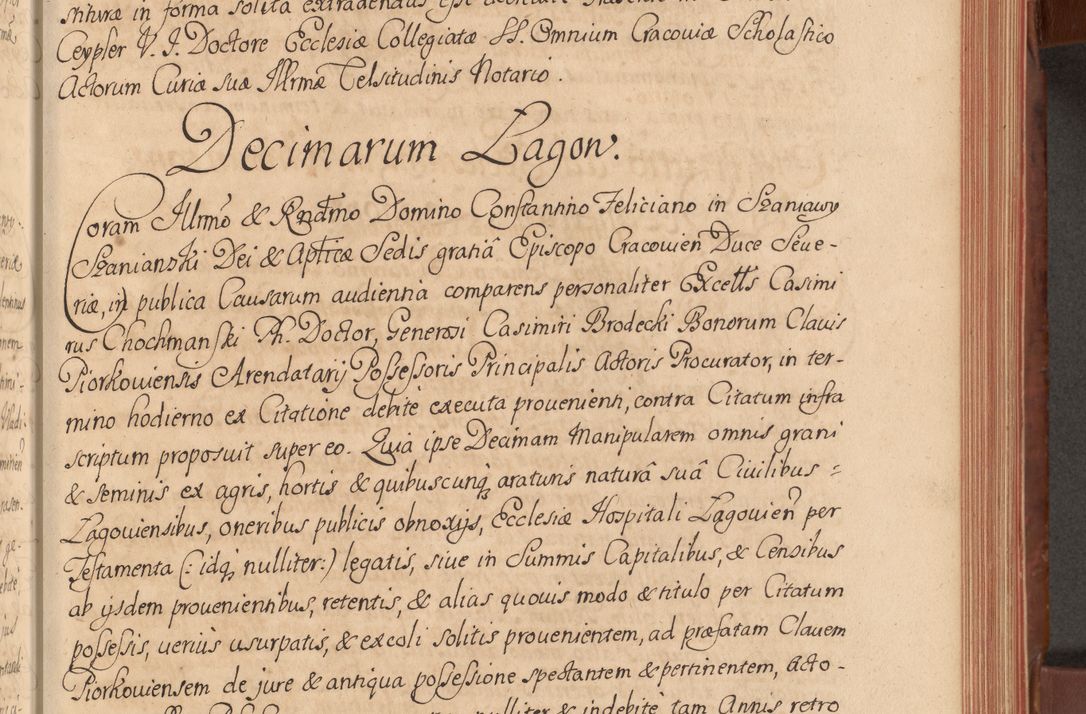 Ceypler V. J. Doctore Ecclesiæ Collegiatæ SS. Omnium Cracoviæ Scholastico
Actorum Curiæ suæ Illrmæ Celsitudinis Notario.
Decimarum Lagow.
Coram Illrmo & Rndmo Domino Constantino Feliciano in Szaniawy
Szanianski Dei & Apticæ Sedis gratiâ Episcopo Cracovien Duce Seve-
riæ, in publica Causarum audientia comparens personaliter Excells Casimi
rus Chochmanski Ph. Doctor, Generosi Casimiri Brodecki Bonorum Clavis
Piorkoviensis Arendatarij Possessoris Principalis Actoris Procurator, in ter-
mino hodierno ex Citatione debite executa provenienti, contra Citatum infra
scriptum proposuit super eo. Quia ipse Decimam Manipularem omnis grani
& seminis ex agris, hortis & quibuscunq araturis naturâ suâ Civilibus =
Lagoviensibus, oneribus publicis obnoxijs, Ecclesiæ Hospitali Lagovien per
Testamenta (: idq nulliter:) legatis, sive in Summis Capitalibus, & Censibus
ab ijsdem provenientibus, retentis, & alias quovis modo & titulo per Citatum
possessis, veriùs usurpatis, & excoli solitis provenientem, ad præfatam Clavem
Piorkoviensem de jure & antiqua possessione spectantem & pertinentem, acto-
nulliter & indebitè tam Annis retro